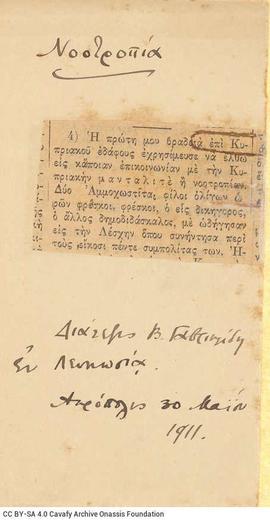 Νοοτροπία
4) Ἡ πρώτη μου βραδειὰ ἐπὶ Κυ-
πριακοῦ ἐδάφους ἐχρησίμευσε νὰ ἔλθω
εἰς κάποιαν ἐπικοινωνίαν μὲ τὴν Κυ-
πριακὴν μανταλιτὲ ἢ νοοτροπίαν.
Δύο Ἀμμοχωστῖται, φίλοι ὀλίγων ὡ-
ρῶν φρέσκοι, φρέσκοι, ὁ εἷς δικηγόρος,
ὁ ἄλλος δημοδιδάσκαλος, μὲ ὡδήγησαν
εἰς τὴν Λέσχην ὅπου συνήντησα περὶ
τοὺς εἴκοσι πέντε συμπολίτας των. Ἤ-
Διάλεξις Β. Γαβριηλίδη
ἐν Λευκωσίᾳ.
Ἀκρόπολις 30 Μαΐου
1911.
CC BY-SA 4.0 Cavafy Archive Onassis Foundation